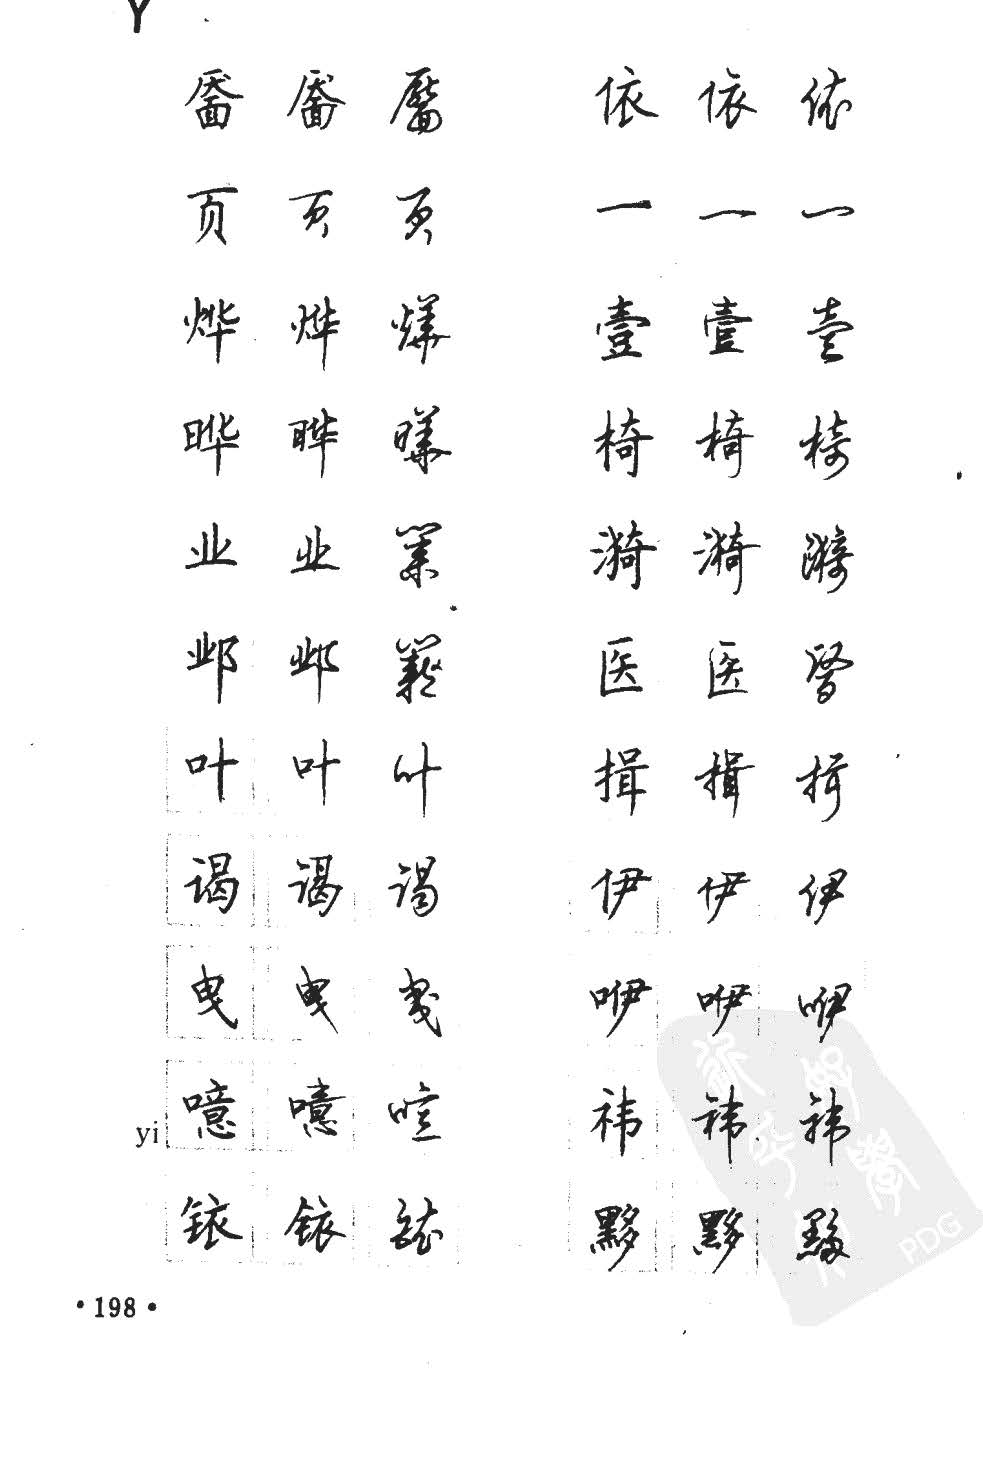 Y
靥 靥 靥 依 依 依
页 页 页 一 一 一
烨 烨 燁 壹 壹 壹
晔 晔 曄 椅 椅 椅
业 业 業 漪 漪 漪
邺 邺 鄴 医 医 醫
叶 叶 叶 揖 揖 揖
谒 谒 谒 伊 伊 伊
曳 曳 曳 咿 咿 咿
yi 噫 噫 噫 祎 祎 祎
铱 铱 铱 黟 黟 黟
·198·
PDG